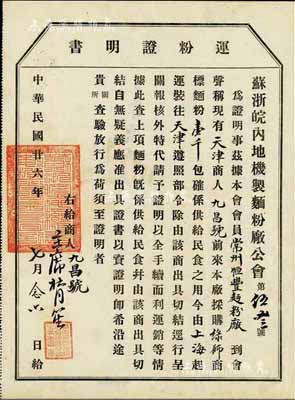 運粉證明書
蘇浙皖內地機製麵粉廠公會 第伍三號
為證明事茲據本會會員常州恆豐麵粉廠到會
聲稱現有天津商人九昌號前來本廠採購綠師商
標麵粉壹千包確係供給民食之用今由上海起
運裝往天津遵照部令除由該商出具切結逕行呈
關報核外特代請予證明以全手續而利運銷等情
據此查上項麵粉旣係供給民食幷由該商出具切
結自無疑義應准出具證書以資證明卽希沿途
貴關所查驗放行爲荷須至證明者
右給商人九昌號
主席杜月笙
中華民國廿六年七月念六日給